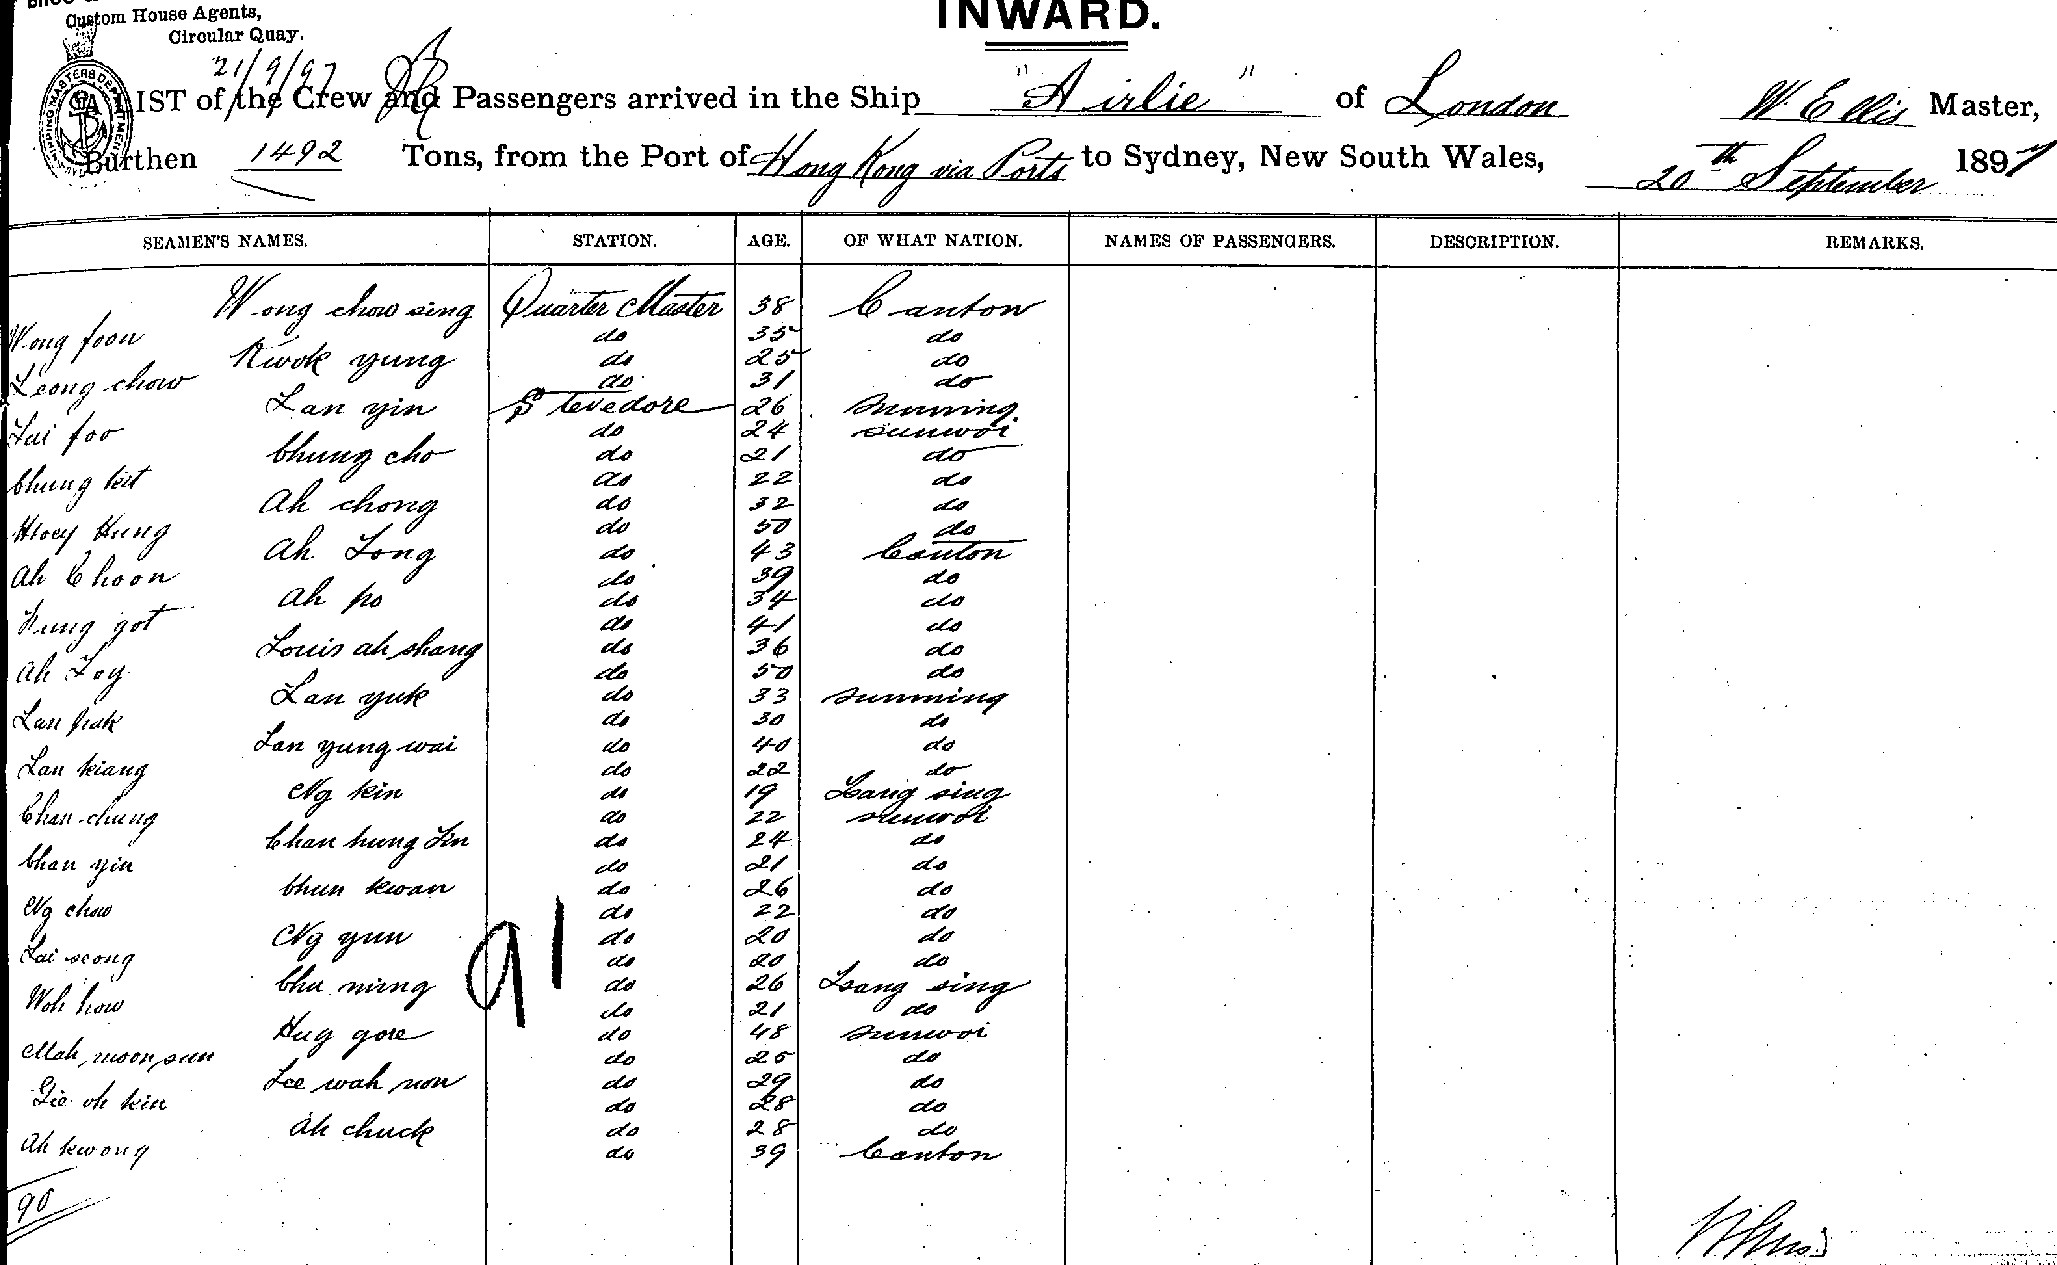 Custom House Agents,
Circular Quay.
INWARD.
21/9/97
A LIST of the Crew and Passengers arrived in the Ship "Airlie" of London W. Ellis Master,
Burthen 1492 Tons, from the Port of Hong Kong via Ports to Sydney, New South Wales, 20th September 1897
SEAMEN'S NAMES. STATION. AGE. OF WHAT NATION. NAMES OF PASSENGERS. DESCRIPTION. REMARKS.
Wong chow sing Quarter Master 38 Canton
Wong foon do 35 do
Kwok yung do 25 do
Leong chow do 31 do
Lan yin Stevedore 26 sunning
Lui foo do 24 sunwoi
Chung cho do 21 do
Chung kit do 22 do
Ah chong do 32 do
Hoey Kung do 50 do
Ah Long do 43 Canton
Ah Choon do 39 do
Ah po do 34 do
Kung got do 41 do
Louis ah shang do 36 do
Ah Loy do 50 do
Lan yuk do 33 sunning
Lan pak do 30 do
Lan yung wai do 40 do
Lan kiang do 22 do
Ng kin do 19 Tsang sing
Chan chung do 22 sunwoi
Chan hung Lin do 24 do
Chan yin do 21 do
Chun kwan do 26 do
Ng chow do 22 do
Ng yun do 20 do
Lai seong do 20 do
Chu ning do 26 Tsang sing
Woh how do 21 do
Hug gore do 48 sunwoi
Mah moon sun do 25 do
Lee wah non do 29 do
Gie oh kin do 28 do
Ah chuck do 28 do
Ah kwong do 39 Canton
91
90